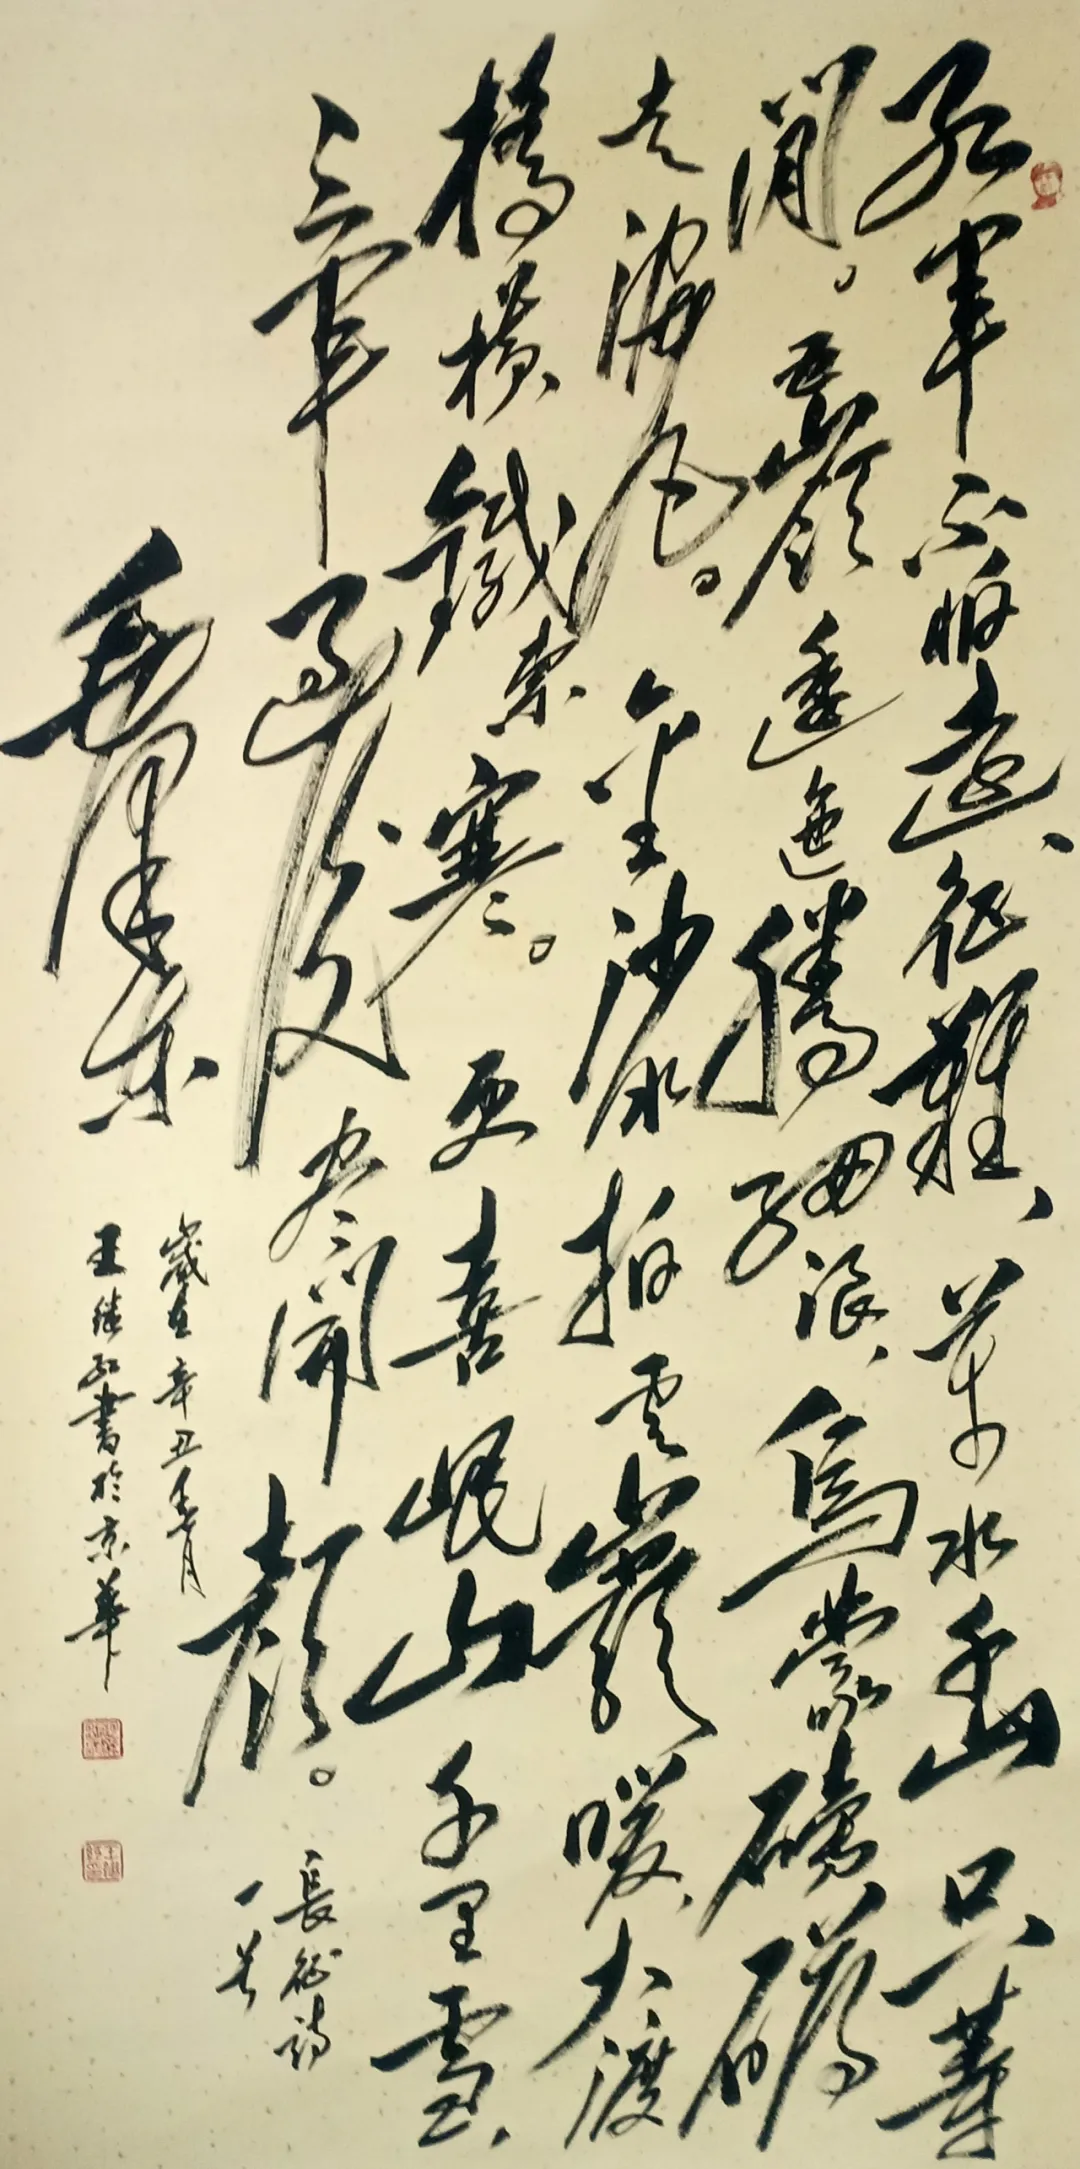 紅軍不怕遠征難、萬水千山只等
閒。五嶺逶迤騰細浪、烏蒙磅礴
走泥丸。金沙水拍雲崖暖、大渡
橋橫鐵索寒。更喜岷山千里雪、
三軍過後尽開顏。
長征詩
一首
毛澤東
歲在辛丑春月
王继紅書於京華